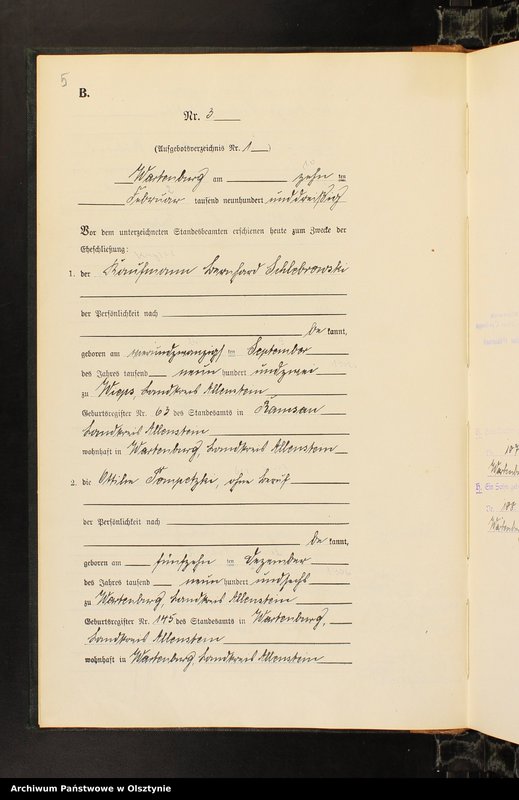 5
B.
Nr. 3
(Aufgebotsverzeichnis Nr. 1)
Wartenburg am zehn ten
Februar tausend neunhundert unddreißig
Vor dem unterzeichneten Standesbeamten erschienen heute zum Zwecke der
Eheschließung:
1. der Kaufmann Bernhard Schlebrowski
der Persönlichkeit nach
be kannt,
geboren am ten September
des Jahres tausend neun hundert undzwei
zu Wieps, Landkreis Allenstein
Geburtsregister Nr. 63 des Standesamts in Ramsau
Landkreis Allenstein
wohnhaft in Wartenburg, Landkreis Allenstein
2. die Ottilie ohne Beruf
der Persönlichkeit nach
be kannt,
geboren am fünfzehn ten Dezember
des Jahres tausend neun hundert undsechs
zu Wartenburg, Landkreis Allenstein
Geburtsregister Nr. 145 des Standesamts in Wartenburg,
Landkreis Allenstein
wohnhaft in Wartenburg, Landkreis Allenstein
Archiwum Państwowe w Olsztynie